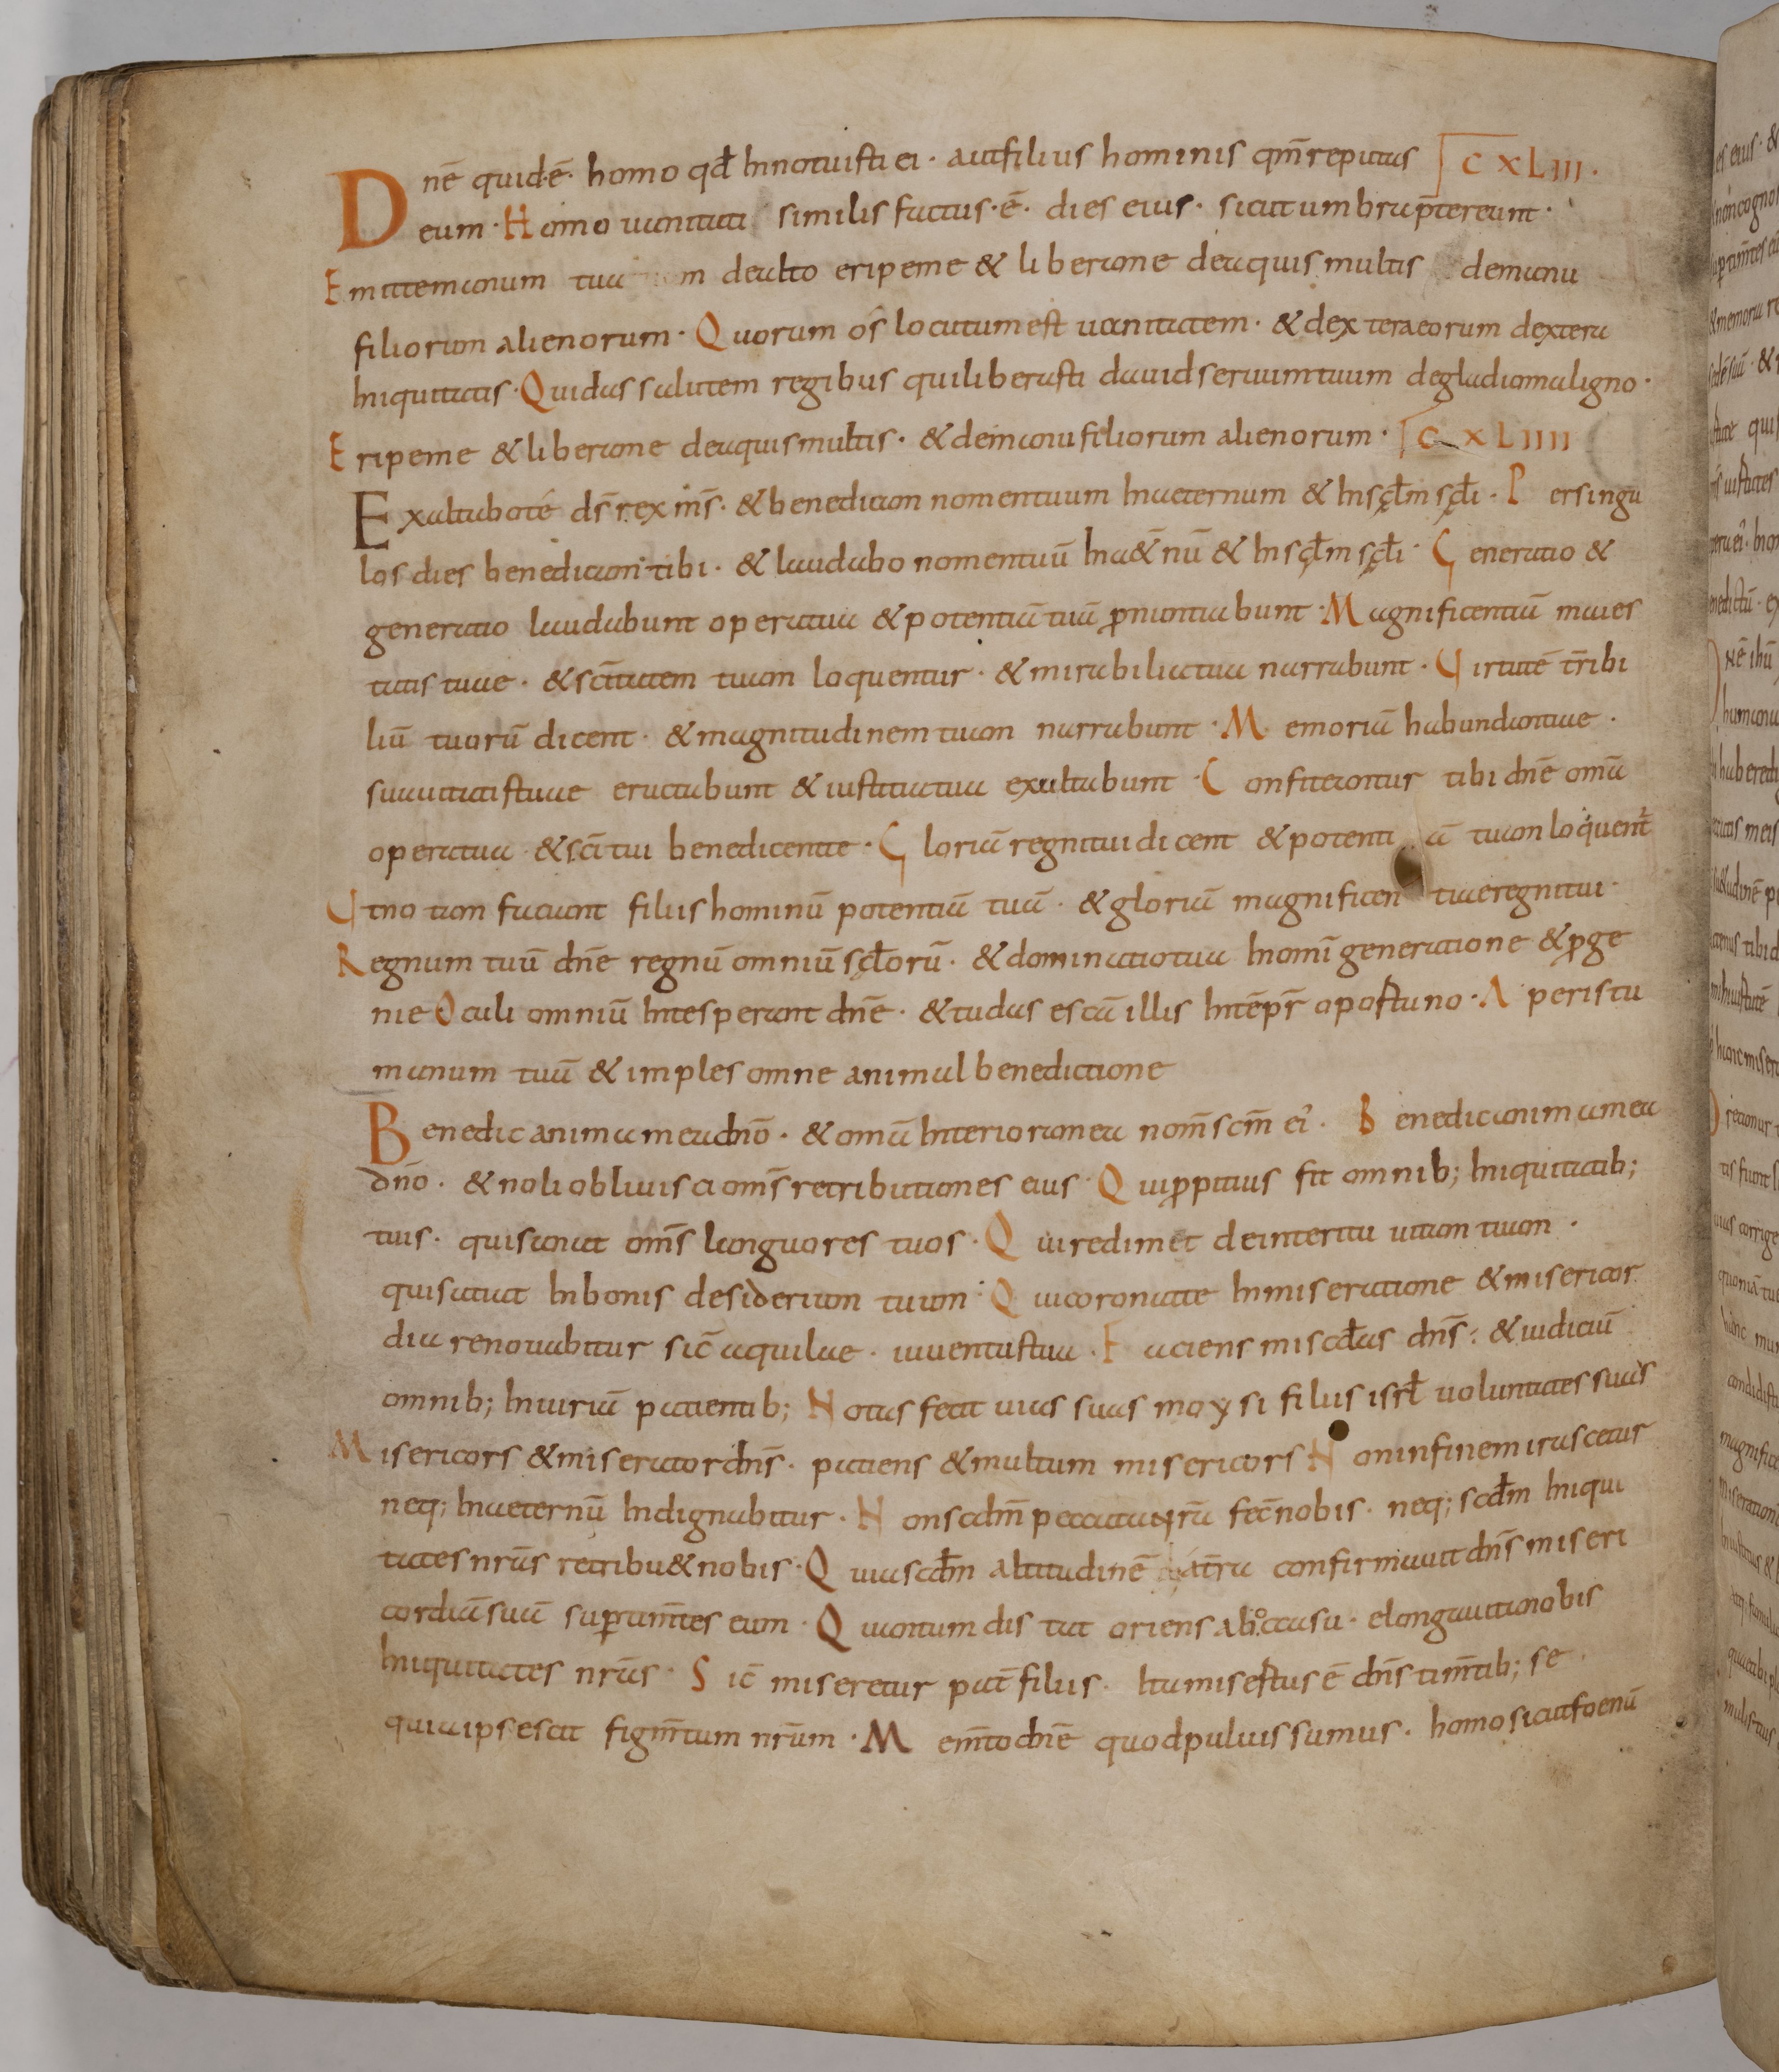 Dnē quid·ē· homo qđ Innotuisti ei· aut filius hominis qm̄ reputas CXLIII·
eum· Homo uanitati similis factus·ē· dies eius· sicut umbra p̄tereunt·
Emitte manum tua m de alto eripe me & libera me de aquis multis de manu
filiorum alienorum· Quorum os locutum est uanitatem· & dextera eorum dextera
Iniquitatis· Qui das salutem regibus qui liberasti dauid seruum tuum de gladio maligno·
Eripe me & libera me de aquis multis· & de manu filiorum alienorum· CXLIIII
Exaltabo té ds̄ rex ms̄· & benedicam nomen tuum In aeternum & In sc̨łm sc̨łi· Per singu
los dies benedicam tibi· & laudabo nomen tuū In a&nū & In sc̨łm sc̨łi· Generatio &
generatio laudabunt opera tua & potentiā tuā p̄nuntiabunt· Magnificentiā maies
tatis tuae· & sc̄itatem tuam loquentur· & mirabilia tua narrabunt· Uirtutē tr̄ibi
liū tuorū dicent· & magnitudinem tuam narrabunt· Memoriā habundantiae·
suauitatis tuae eructabunt & iustitia tua exultabunt· Confiteantur tibi dnē omā
opera tua· & sc̄i tui benedicent te· Gloriā regni tui dicent & potenti ā tuam loquent̄
Ut notam faciant filiis hominū potentiā tuā· & gloriā magnificen tiae regni tui·
Regnum tuū dnē regnū omniū sc̨łorū· & dominatio tua In omī generatione & p̄ge
nie Oculi omniū In te sperant dnē· & tu das escā illis In tēpr̄ oportuno· Aperis tu
manum tuā & imples omne animal benedictione
Benedic anima mea dnō· & omā Interiora mea nom̄ scm̄ ei᾽· Benedic anima mea
dnō· & noli obliuisci om̄s retributiones eius· Qui p̄pitius fit omnib; Iniquitatib;
tuis· qui sanat om̄s languores tuos· Qui redimet de interitu uitam tuam·
qui satiat In bonis desiderium tuum· Qui coronat te In miseratione & misericor
dia renouabitur sic̄ aquilae· iuuentus tua· Faciens miscđas dn̄s: & iudiciū
omnib; Iniuriā patientib; Notas fecit uias suas moysi filiis isrł uoluntates suas
Misericors & miserator dn̄s· patiens & multum misericors Non in finem irascetur
neq; In aeternū Indignabitur· Non scdm̄ peccata nr̄a fec̄ nobis· neq; scđm Iniqui
tates nrās retribu& nobis· Quia scđm altitudinē a tr̄ra confirmauit dn̄s miseri
cordiā suā sup̄ tim̄tes eum· Quantum distat oriens ab occasu· elongauit a nobis
Iniquitates nrās· Sic̄ miseretur pat̄ filiis· Ita misertus ē dn̄s tim̄tib; se·
quia ipse scit figm̄tum nrūm· Mem̄to dnē quod puluis sumus· homo sicut foenū